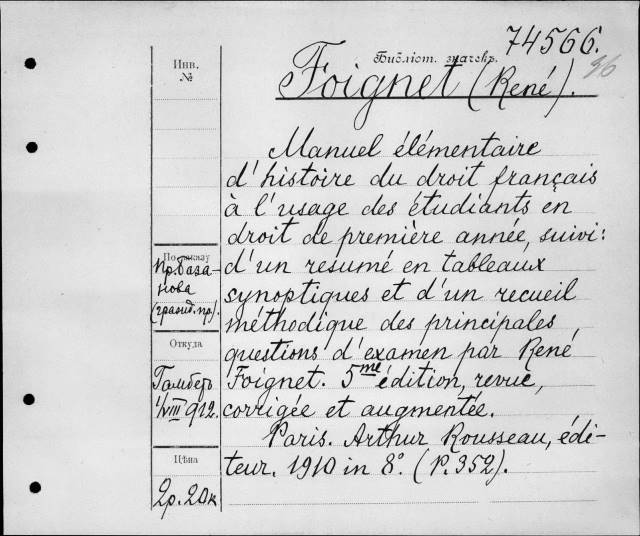 74566.
36
Библіот. значекъ.
Foignet (René).
Manuel élémentaire
d'histoire du droit français
à l'usage des étudiants en
droit de première année, suivi:
d'un resumé en tableaux
synoptiques et d'un recueil
méthodique des principales
questions d'examen par René
Foignet. 5me édition, revue,
corrigée et augmentée.
Paris. Arthur Rousseau, édi-
teur. 1910 in 8°. (P. 352).
Инв.
№
По заказу
Пр. База-
нова
Откуда
Гамберъ
1/VIII 912.
Цѣна
2р. 20к